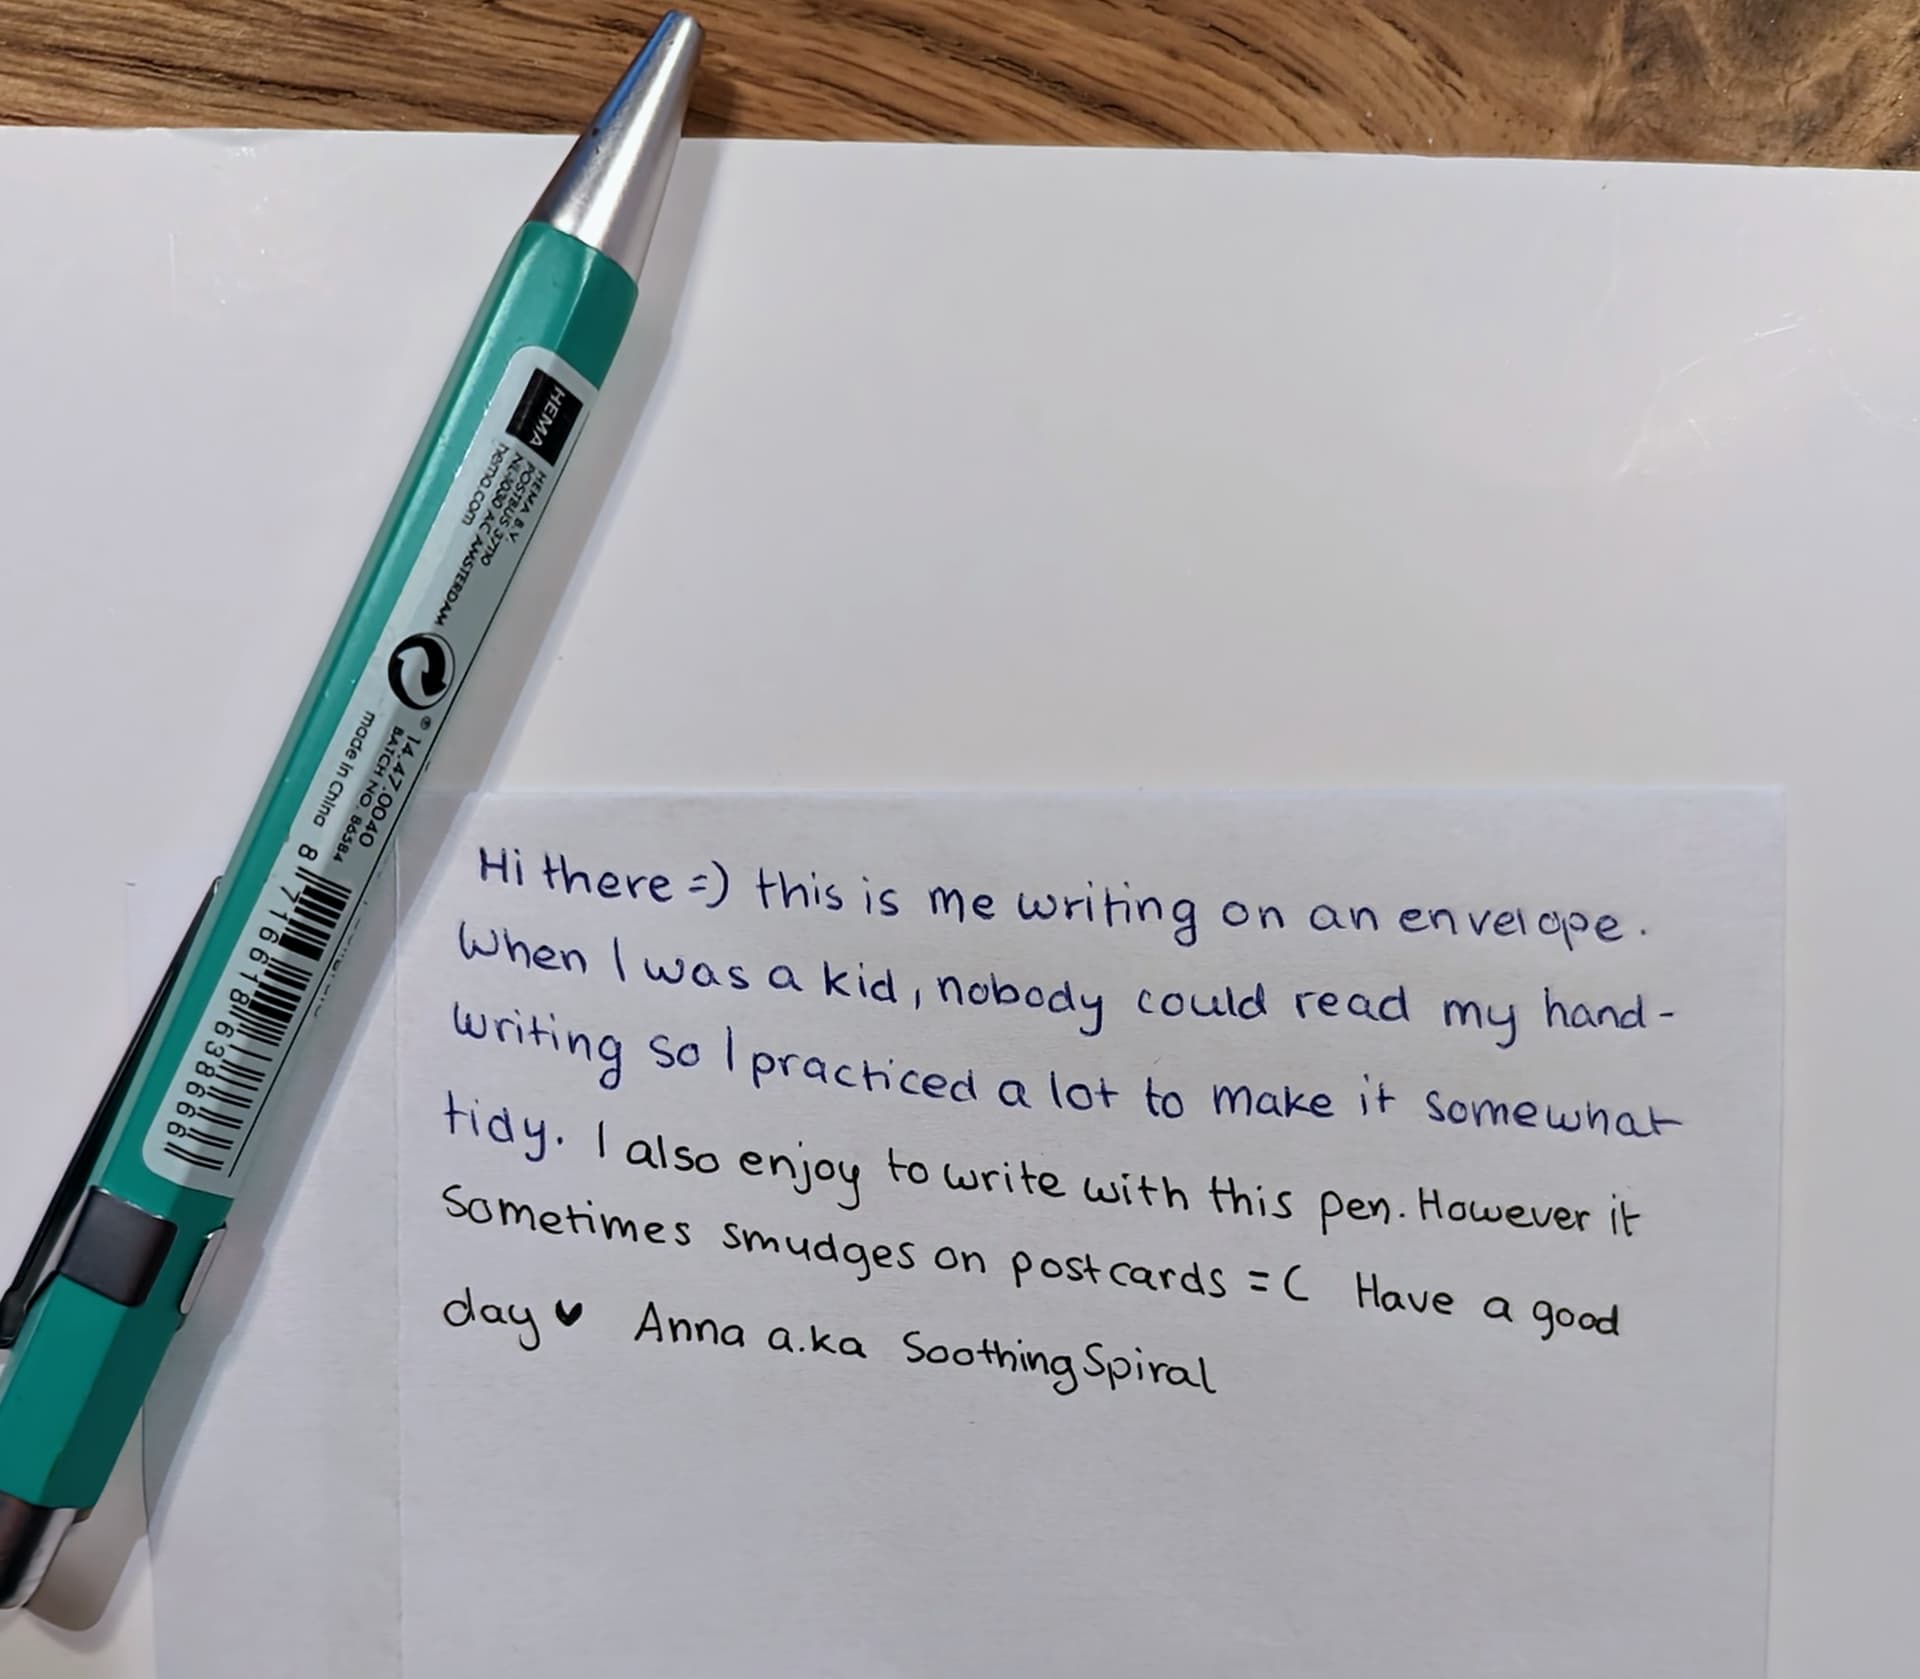 HEMA
HEMA B.V.
POSTBUS 37110
NL-1030 AC AMSTERDAM
hema.com
14.47.0040
BATCH NO. 86584
made in China
8 716618 638666
Hi there =) this is me writing on an envelope.
When I was a kid, nobody could read my hand-
writing so I practiced a lot to make it somewhat
tidy. I also enjoy to write with this pen. However it
sometimes smudges on postcards =( Have a good
day ♥ Anna a.ka SoothingSpiral